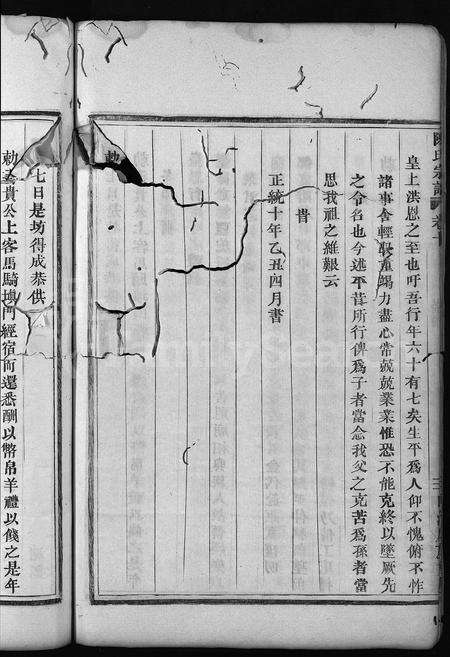 陳氏宗譜
皇上洪恩之至也吁吾行年六十有七矣生平為人仰不愧俯不怍
諸事舍輕取重竭力盡心常兢兢業業惟恐不能克終以墜厥先
之令名也今述平昔所行俾為子者當念我父之克苦為孫者當
思我祖之維艱云
旹
正統十年乙丑四月書
七日是坊得成恭供
勅
貴公上客馬騎墺門經宿而還悉酬以幣帛羊禮以餞之是年